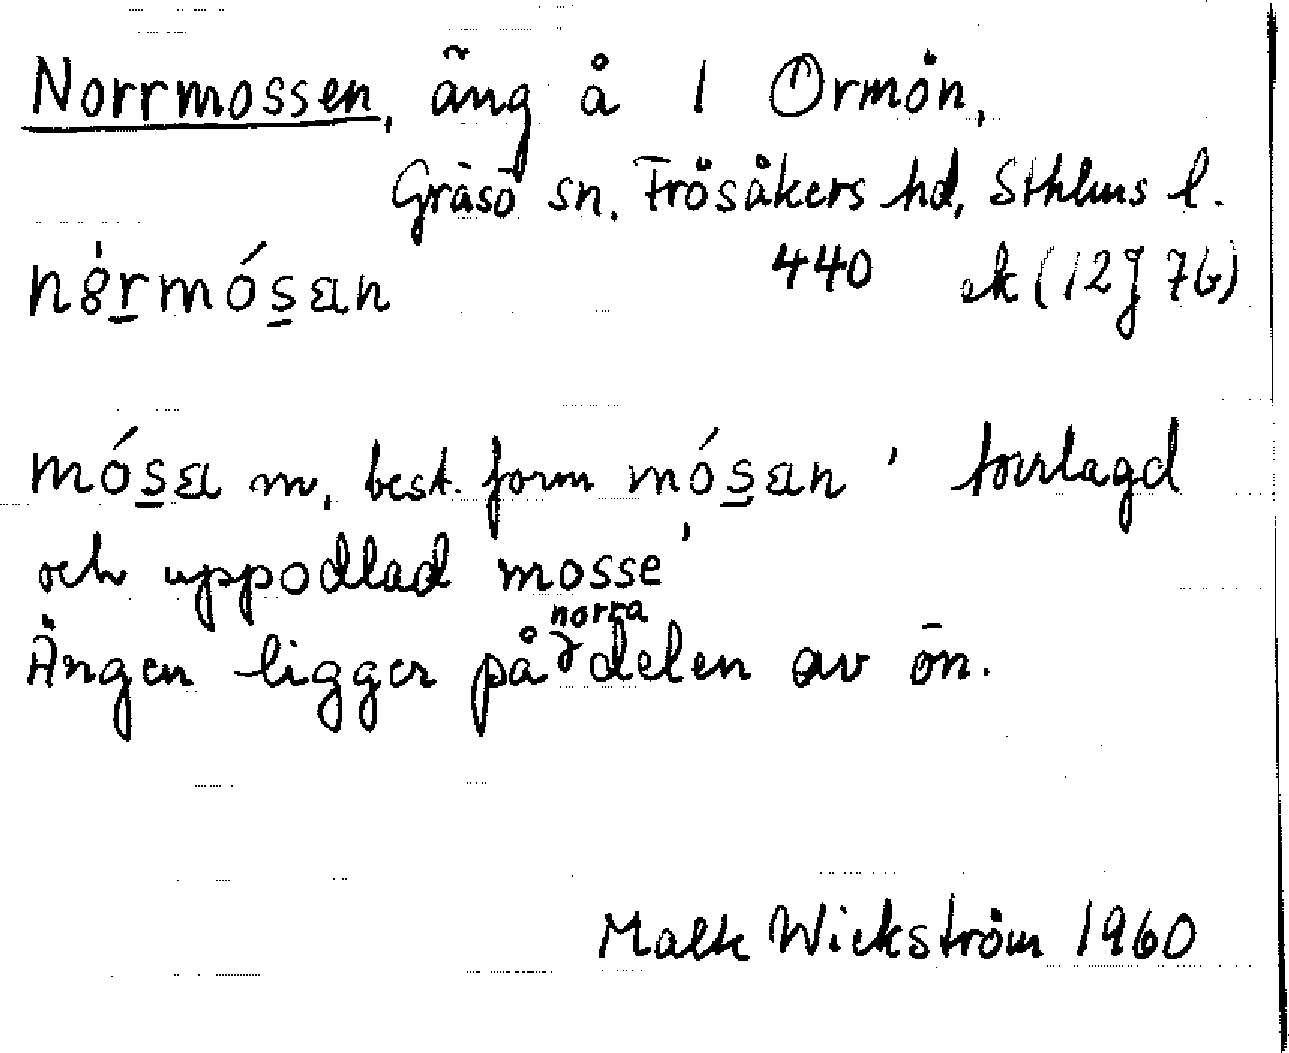 Norrmossen, äng å 1 Ormön,
Gräsö sn. Frösåkers hd, Sthlms l.
nȯ́rmósan 440 ek (12J 7b)
mósa m. best. form mósan 'torrlagd
och uppodlad mosse'
Ängen ligger på norra delen av ön.
Malte Wickström 1960